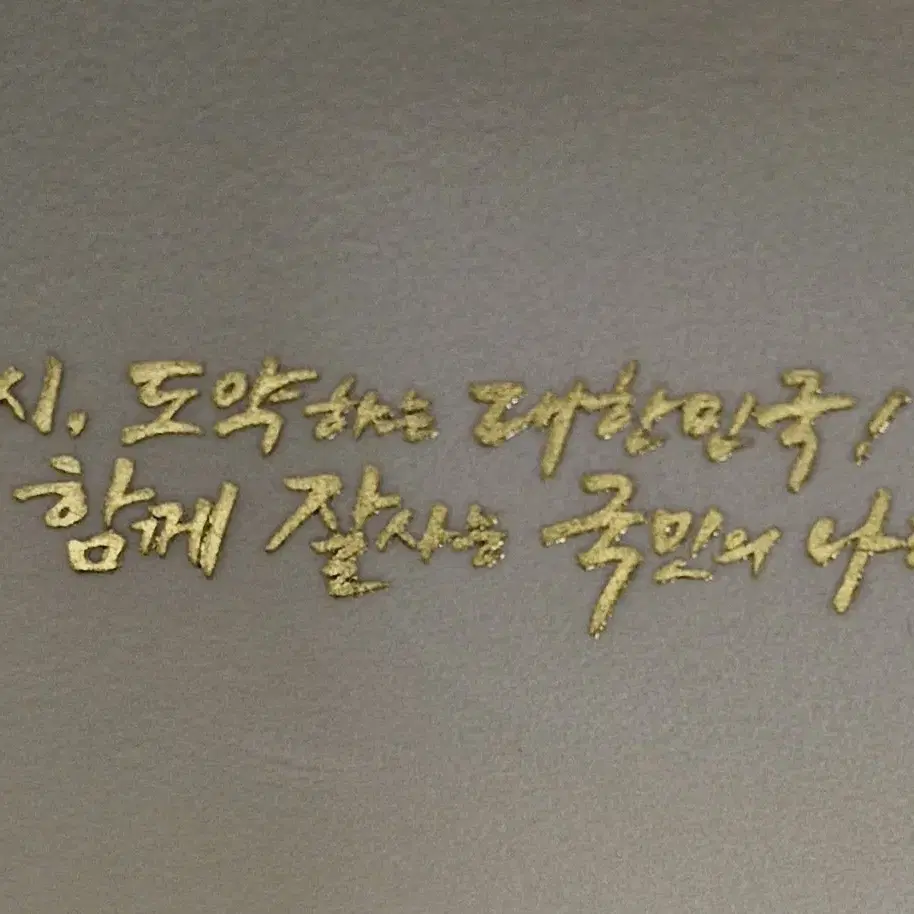 시, 도약하는 대한민국!
함께 잘사는 국민의 나